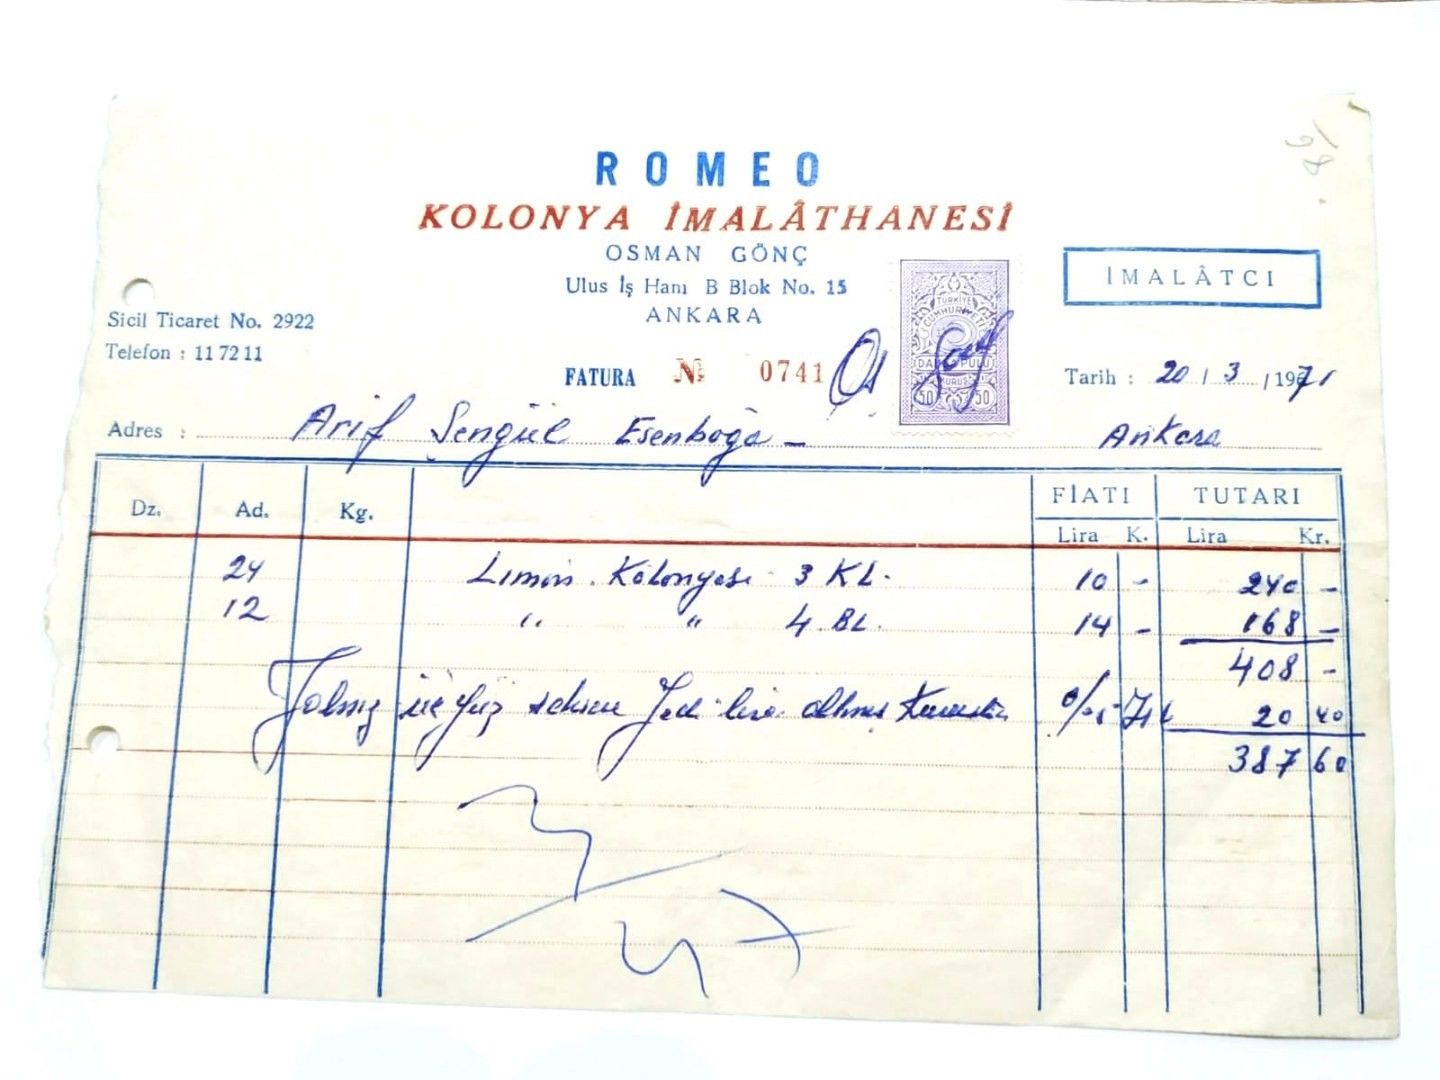 ROMEO
KOLONYA İMALÂTHANESİ
OSMAN GÖNÇ
Ulus İş Hanı B Blok No. 15
ANKARA
İMALÂTCI
Sicil Ticaret No. 2922
Telefon : 11 72 11
FATURA № 0741
TÜRKİYE CUMHURİYETİ
DAMGA PULU
KURUŞ
50 50
Tarih : 20 / 3 / 1971
Adres : Arif Şengül Esenboğa - Ankara
Dz. Ad. Kg. FİATI TUTARI
Lira K. Lira Kr.
24 Limon Kolonyası 3 KL. 10 - 240 -
12 " " 4 BL. 14 - 168 -
408 -
Yalnız üç yüz seksen Yedi lira altmış Kuruştur 20 40
387 60